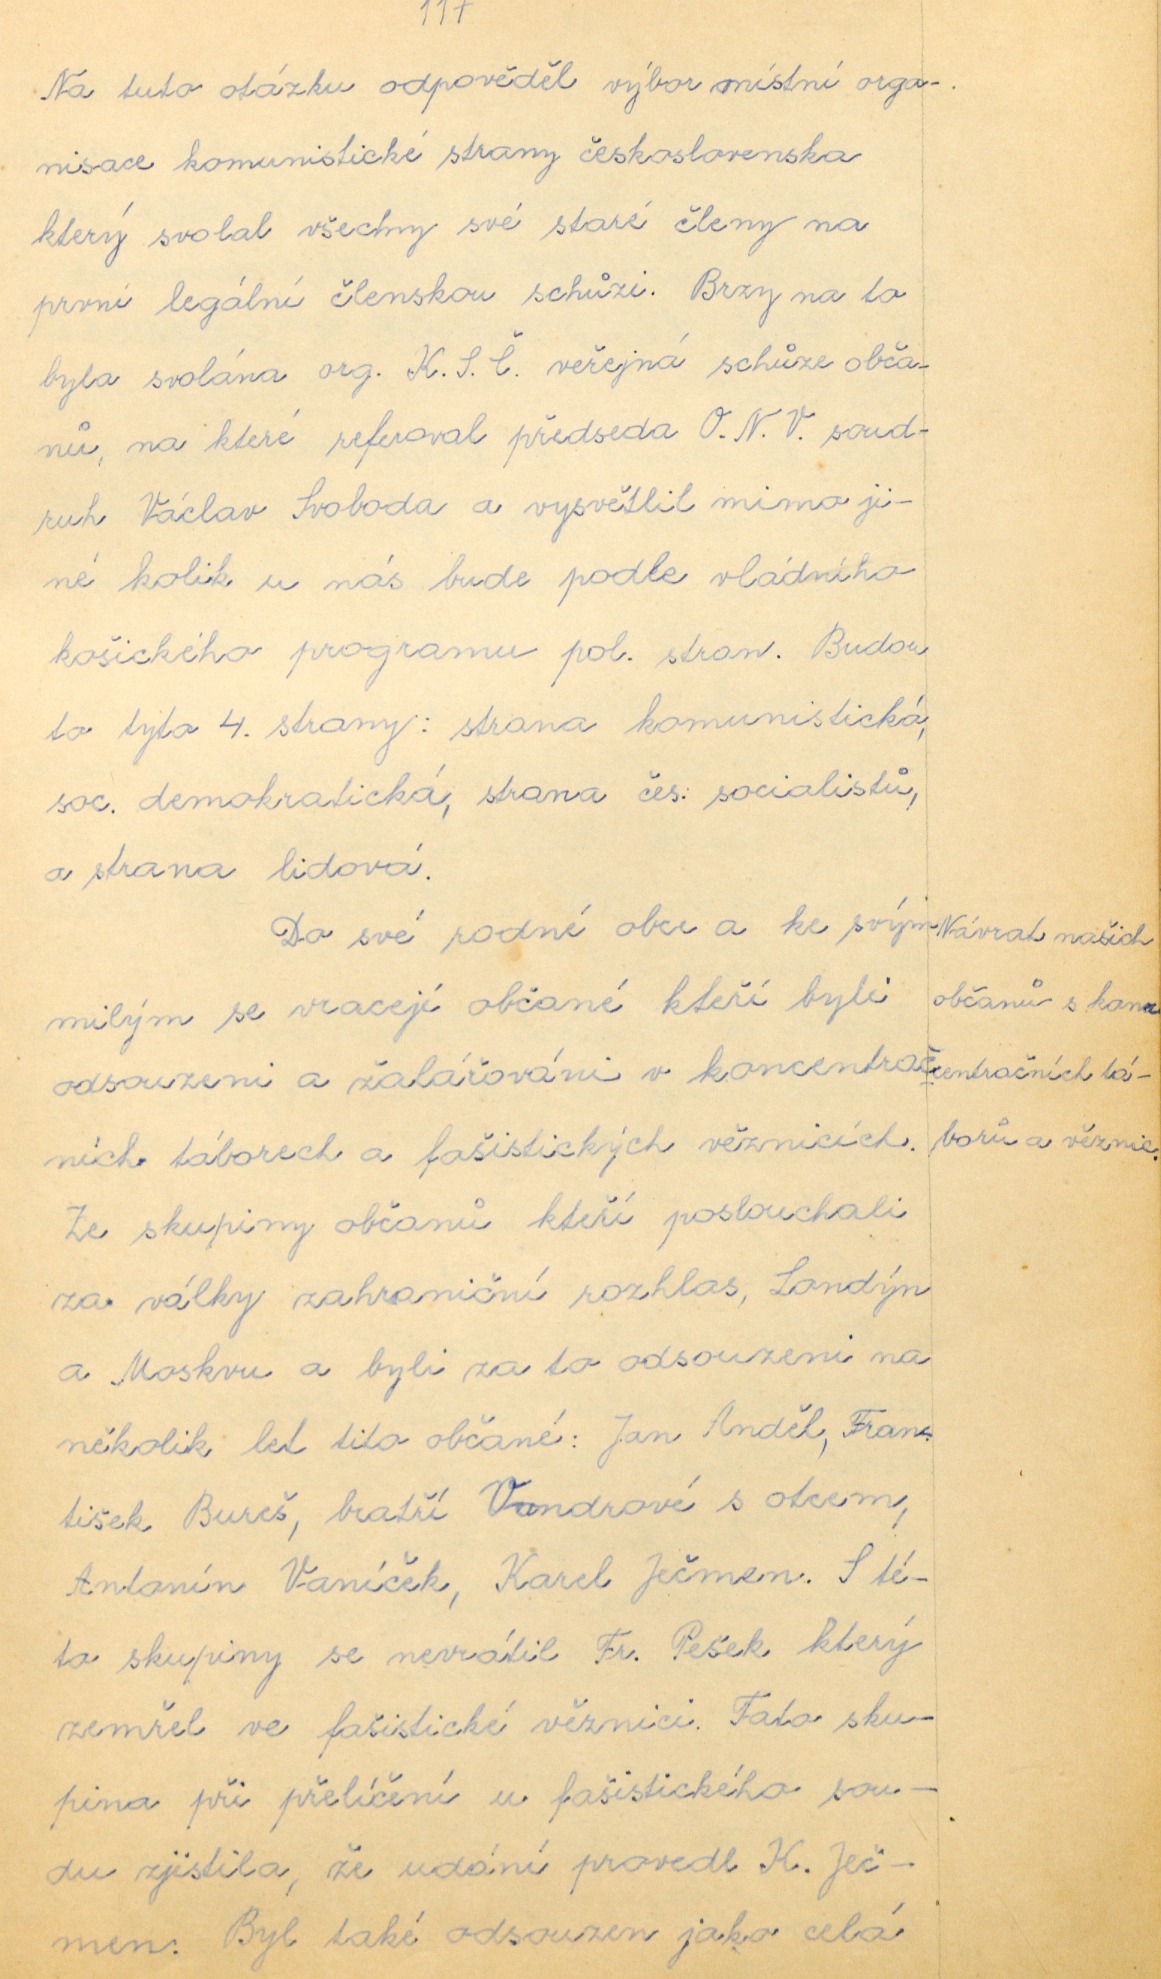 117
Na tuto otázku odpověděl výbor místní orga-
nisace komunistické strany československa
který svolal všechny své staré členy na
první legální členskou schůzi. Brzy na to
byla svolána org. K. S. Č. veřejná schůze obča-
nů, na které referoval předseda O. N. V. soud-
ruh Václav Svoboda a vysvětlil mimo ji-
né kolik u nás bude podle vládního
košického programu pol. stran. Budou
to tyto 4. strany: strana komunistická,
soc. demokratická, strana čes. socialistů,
a strana lidová.
Do své rodné obce a ke svým
milým se vracejí občané kteří byli
odsouzeni a žalářováni v koncentrač-
ních táborech a fašistických věznicích.
Návrat našich
občanů s kon-
centračních tá-
borů a věznic.
Ze skupiny občanů kteří poslouchali
za války zahraniční rozhlas, Londýn
a Moskvu a byli za to odsouzeni na
několik let tito občané: Jan Anděl, Fran-
tišek Bureš, bratří Vondrové s otcem,
Antonín Vaníček, Karel Ječmen. S té-
to skupiny se nevrátil Fr. Pešek který
zemřel ve fašistické věznici. Tato sku-
pina při přelíčení u fašistického sou-
du zjistila, že udání provedl K. Ječ-
men. Byl také odsouzen jako celá